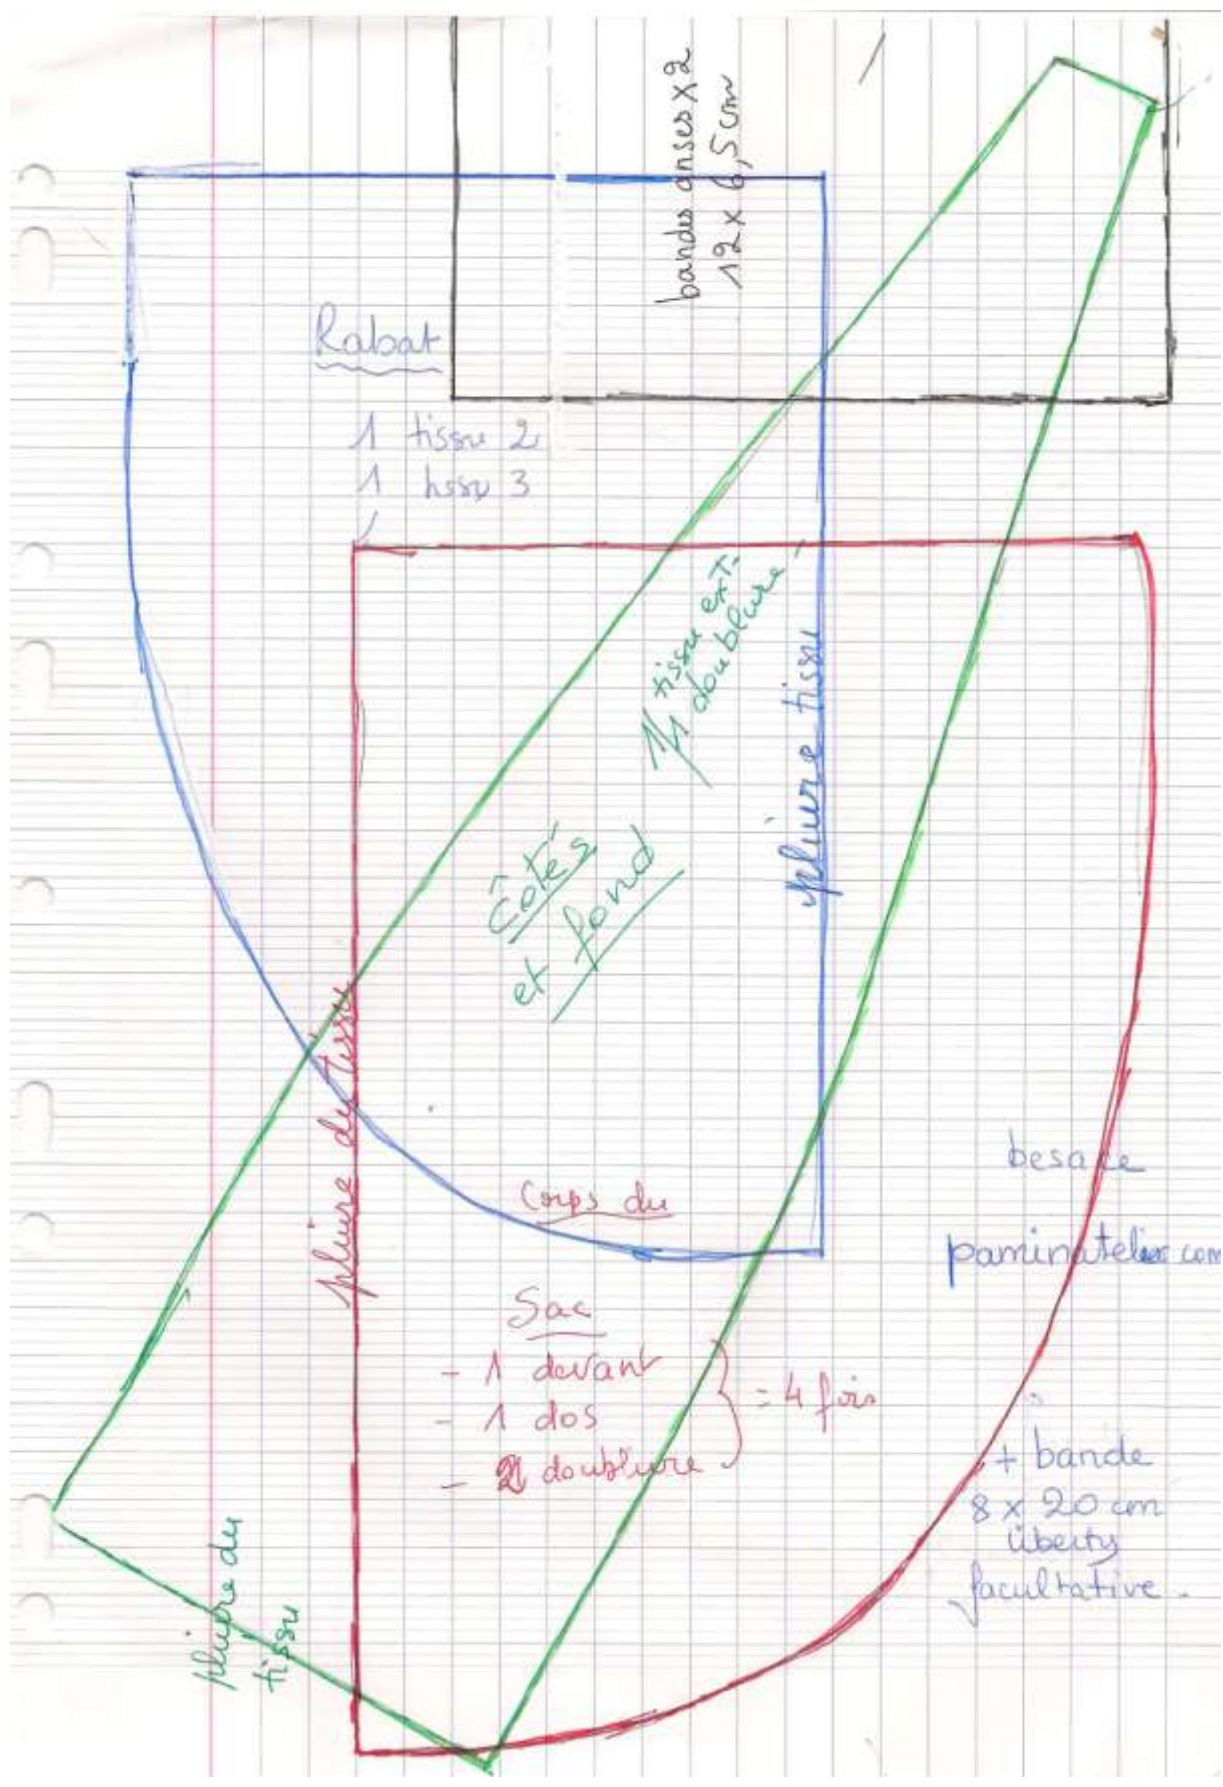 bandes anses x 2
12 x 6,5 cm
Rabat
1 tissu 2
1 tissu 3
1 tissu ext.
1 doublure
pliure tissu
Côtés
et fond
pliure du tissu
Corps du
Sac
- 1 devant
- 1 dos
- 2 doublure
= 4 fois
besace
paminatelier.com
+ bande
8 x 20 cm
liberty
facultative.
pliure du
tissu